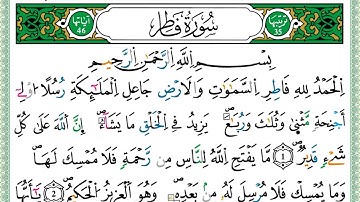 ترتيبها 35 سُورَةُ فَاطِرٍ آياتها 46
بِسْمِ اللَّهِ الرَّحْمَٰنِ الرَّحِيمِ
اِ۬لْحَمْدُ لِلهِ فَاطِرِ اِ۬لسَّمَٰوَٰتِ وَالَارْضِ جَاعِلِ اِ۬لْمَلَٰٓئِكَةِ رُسُلاً ا۟وْلِےٓ
أَجْنِحَةٍ مَّثْن۪يٰ وَثُلَٰثَ وَرُبَٰعَۖ يَزِيدُ فِے اِ۬لْخَلْقِ مَا يَشَآءُۖ اِنَّ اَ۬للَّهَ عَلَىٰ كُلِّ
شَےْءٖ قَدِيرٞۖ 1 مَّا يَفْتَحِ اِ۬للَّهُ لِلنَّاسِ مِن رَّحْمَةٖ فَلَا مُمْسِكَ لَهَاۖ
وَمَا يُمْسِكْ فَلَا مُرْسِلَ لَهُۥ مِنۢ بَعْدِهِۦۖ وَهُوَ اَ۬لْعَزِيزُ اُ۬لْحَكِيمُۖ 2 يَٰٓأَيُّهَا